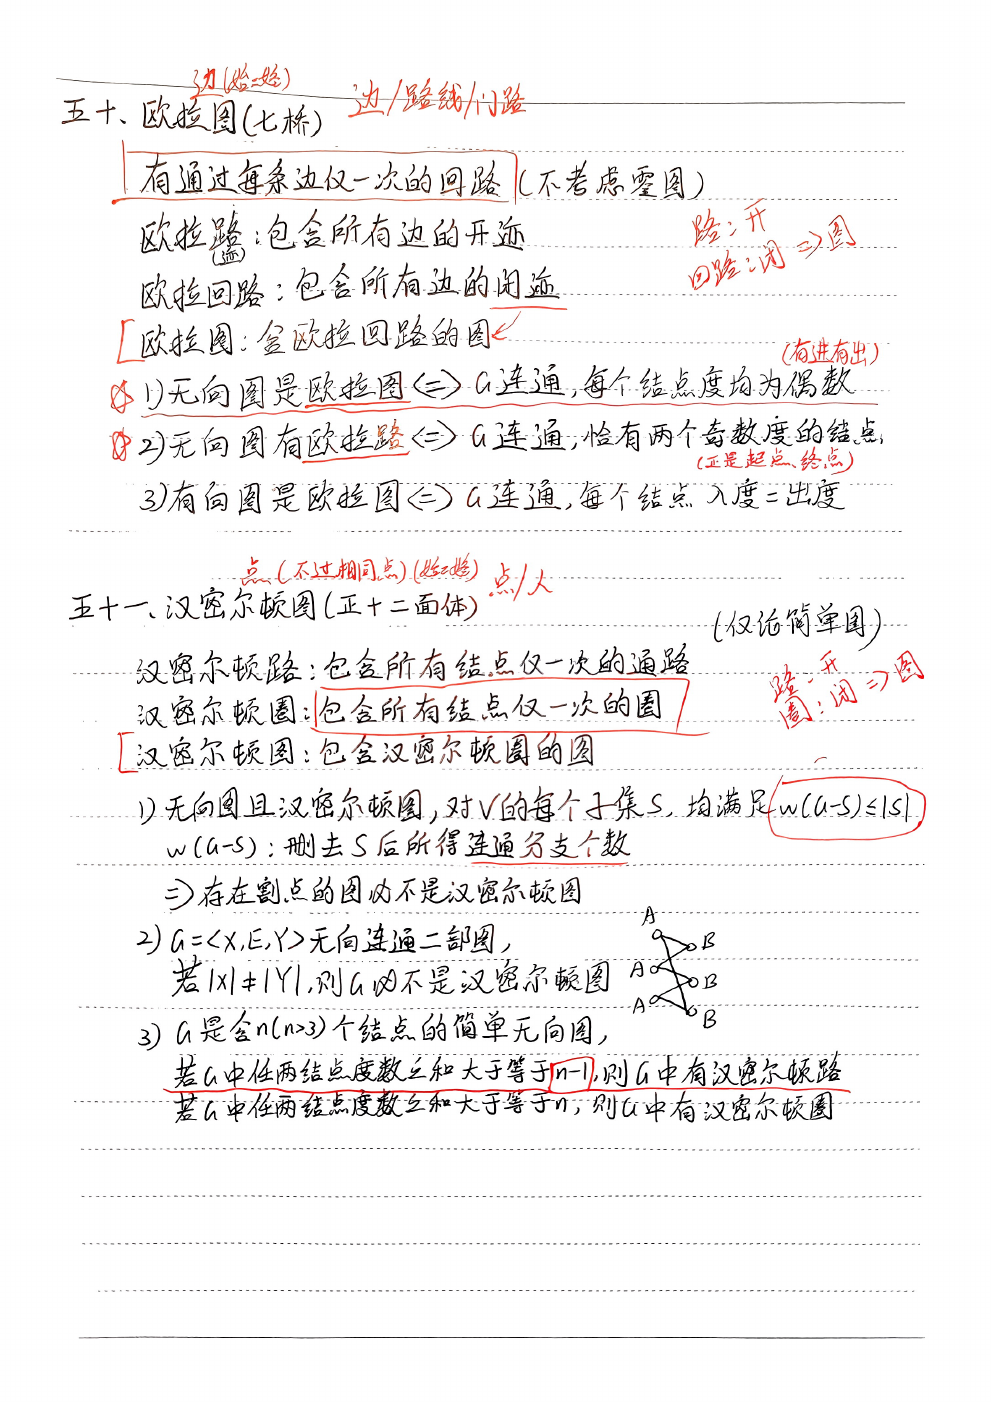 边(始=终)
边/路线/门路
五十、欧拉图(七桥)
有通过每条边仅一次的回路(不考虑零图)
欧拉路:包含所有边的开迹
(迹)
路:开
回路:闭 => 图
欧拉回路:包含所有边的闭迹
欧拉图:含欧拉回路的图
(有进有出)
1)无向图是欧拉图<=>G连通,每个结点度均为偶数
2)无向图有欧拉路<=>G连通,恰有两个奇数度的结点,
(正是起点、终点)
3)有向图是欧拉图<=>G连通,每个结点入度=出度
点(不过相同点)(始=终)
点/人
五十一、汉密尔顿图(正十二面体)
(仅论简单图)
汉密尔顿路:包含所有结点仅一次的通路
路:开
圈:闭 => 图
汉密尔顿圈:包含所有结点仅一次的圈
汉密尔顿图:包含汉密尔顿圈的图
1)无向图且汉密尔顿图,对V的每个子集S,均满足w(G-S)≤|S|
w(G-S):删去S后所得连通分支个数
=>存在割点的图必不是汉密尔顿图
2)G=<X,E,Y>无向连通二部图,
若|X|≠|Y|,则G必不是汉密尔顿图
A
B
A
B
A
B
3)G是含n(n>3)个结点的简单无向图,
若G中任两结点度数之和大于等于n-1,则G中有汉密尔顿路
若G中任两结点度数之和大于等于n,则G中有汉密尔顿圈